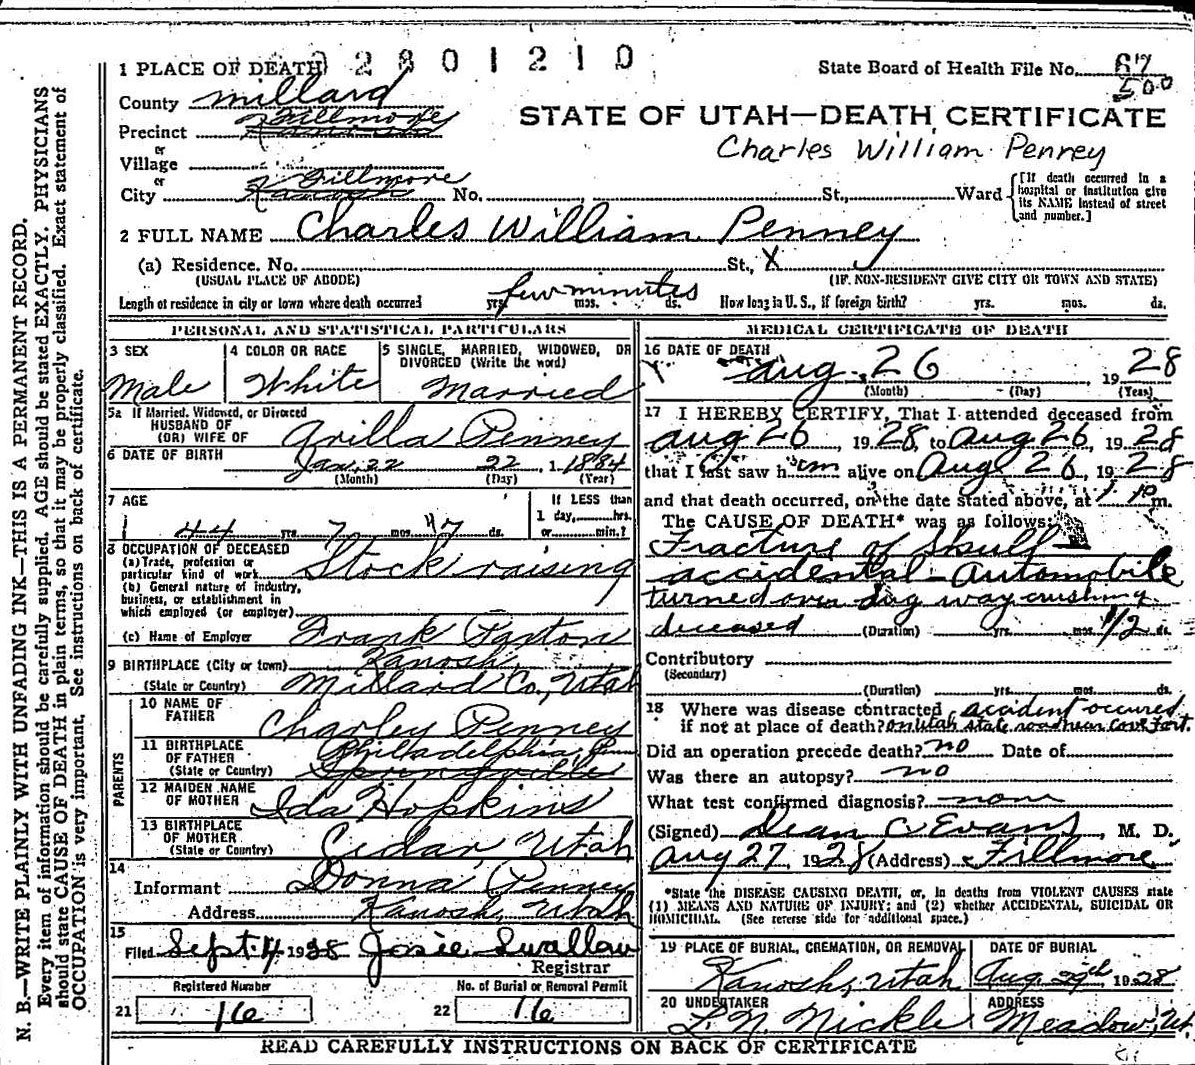 2801210
1 PLACE OF DEATH
State Board of Health File No. 67
500
County Millard
STATE OF UTAH—DEATH CERTIFICATE
Precinct Fillmore Kanosh
Charles William Penney
or
Village
or
City Fillmore Kanosh No. St., Ward
[If death occurred in a hospital or institution give its NAME instead of street and number.]
2 FULL NAME Charles William Penney
(a) Residence. No. St., X
(USUAL PLACE OF ABODE) (IF NON-RESIDENT GIVE CITY OR TOWN AND STATE)
Length of residence in city or town where death occurred few minutes yrs. mos. ds. How long in U. S., if foreign birth? yrs. mos. ds.
PERSONAL AND STATISTICAL PARTICULARS
3 SEX
Male
4 COLOR OR RACE
White
5 SINGLE, MARRIED, WIDOWED, OR DIVORCED (Write the word)
Married
5a If Married, Widowed, or Divorced
HUSBAND OF
(OR) WIFE OF Arilla Penney
6 DATE OF BIRTH Jan. 22 22 1 1884
(Month) (Day) (Year)
7 AGE
44 yrs. 7 mos. ds.
If LESS than
1 day, hrs.
or min.?
8 OCCUPATION OF DECEASED
(a) Trade, profession or
particular kind of work Stock raising
(b) General nature of industry,
business, or establishment in
which employed (or employer)
(c) Name of Employer Frank Paxton
9 BIRTHPLACE (City or town) Kanosh,
(State or Country) Millard Co., Utah
PARENTS
10 NAME OF
FATHER Charley Penney
11 BIRTHPLACE
OF FATHER Philadelphia, Penn
(State or Country) Springville
12 MAIDEN NAME
OF MOTHER Ida Hopkins
13 BIRTHPLACE
OF MOTHER
(State or Country) Cedar, Utah
14
Informant Donna Penney
Address Kanosh, Utah
15
Filed Sept. 4 1928 Josie Swallow
Registrar
Registered Number No. of Burial or Removal Permit
21 16 22 16
MEDICAL CERTIFICATE OF DEATH
16 DATE OF DEATH
Aug. 26, 1928
(Month) (Day) (Year)
17 I HEREBY CERTIFY, That I attended deceased from
Aug 26, 1928, to Aug 26, 1928
that I last saw him alive on Aug 26, 1928
and that death occurred, on the date stated above, at 1 10 m.
The CAUSE OF DEATH* was as follows:
Fracture of Skull
accidental - Automobile
turned over dug way crushing
deceased (Duration) yrs. mos. 1/2 ds.
Contributory
(Secondary)
(Duration) yrs. mos. ds.
18 Where was disease contracted accident occured
if not at place of death? on Utah state road near Cove Fort.
Did an operation precede death? no Date of
Was there an autopsy? no
What test confirmed diagnosis? none
(Signed) Dean C. Evans, M. D.
Aug 27, 1928 (Address) Fillmore
*State the DISEASE CAUSING DEATH, or, in deaths from VIOLENT CAUSES state
(1) MEANS AND NATURE OF INJURY; and (2) whether ACCIDENTAL, SUICIDAL OR
HOMICIDAL. (See reverse side for additional space.)
19 PLACE OF BURIAL, CREMATION, OR REMOVAL
Kanosh, Utah
DATE OF BURIAL
Aug. 29th, 1928
20 UNDERTAKER
L. N. Nickle
ADDRESS
Meadow, Ut.
READ CAREFULLY INSTRUCTIONS ON BACK OF CERTIFICATE
N. B.—WRITE PLAINLY WITH UNFADING INK—THIS IS A PERMANENT RECORD.
Every item of information should be carefully supplied. AGE should be stated EXACTLY. PHYSICIANS
should state CAUSE OF DEATH in plain terms, so that it may be properly classified. Exact statement of
OCCUPATION is very important. See instructions on back of certificate.